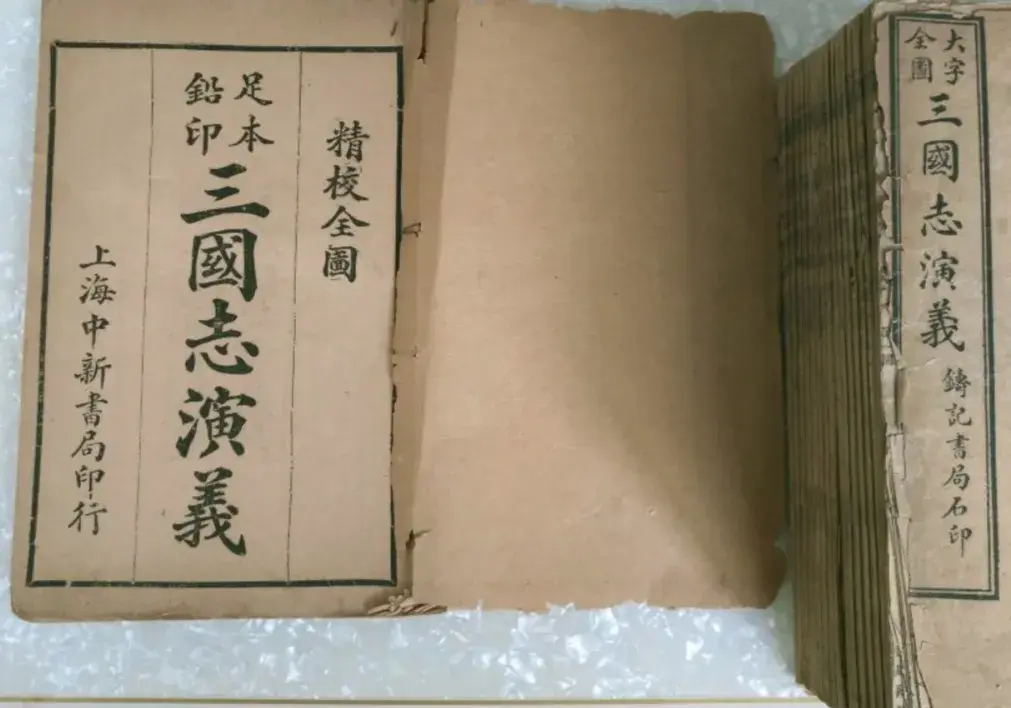 精校全圖
足本
鉛印
三國志演義
上海中新書局印行
大字
全圖
三國志演義
鑄記書局石印